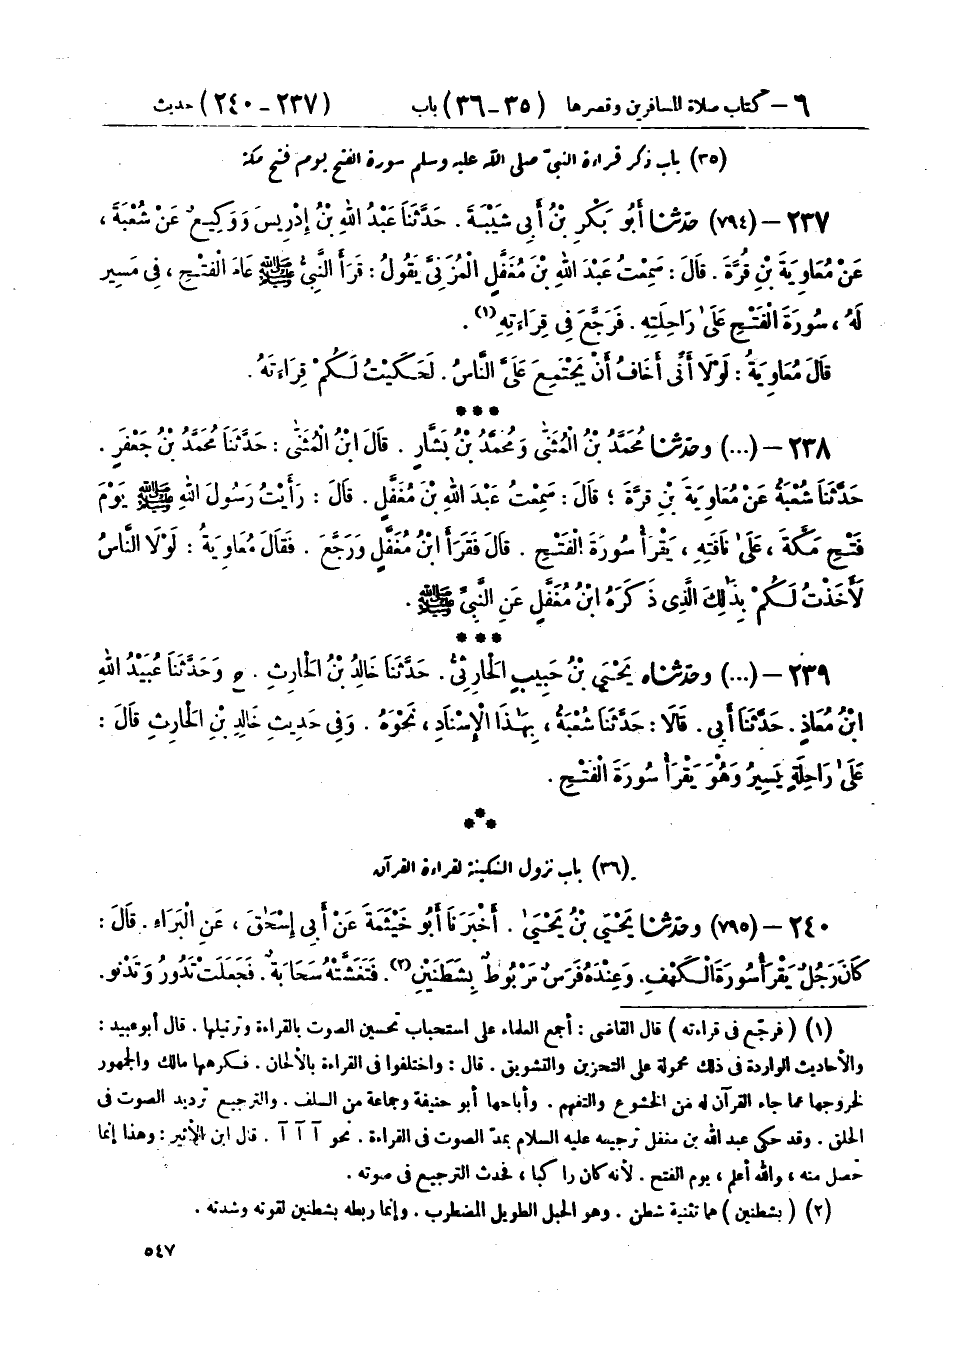 ٦ – كتاب صلاة المسافرين وقصرها (٣٥ – ٣٦) باب (٢٣٧ – ٢٤٠) حديث
(٣٥) باب ذكر قراءة النبيّ صلى الله عليه وسلم سورة الفتح يوم فتح مكة
٢٣٧ – (٧٩٤) حَدَّثَنَا أَبُو بَكْرِ بْنُ أَبِي شَيْبَةَ . حَدَّثَنَا عَبْدُ اللهِ بْنُ إِدْرِيسَ وَوَكِيعٌ عَنْ شُعْبَةَ ،
عَنْ مُعَاوِيَةَ بْنِ قُرَّةَ . قَالَ : سَمِعْتُ عَبْدَ اللهِ بْنَ مُغَفَّلٍ الْمُزَنِيَّ يَقُولُ : قَرَأَ النَّبِيُّ ﷺ عَامَ الْفَتْحِ ، فِي مَسِيرٍ
لَهُ ، سُورَةَ الْفَتْحِ عَلَىٰ رَاحِلَتِهِ . فَرَجَّعَ فِي قِرَاءَتِهِ(١) .
قَالَ مُعَاوِيَةُ : لَوْلَا أَنِّي أَخَافُ أَنْ يَجْتَمِعَ عَلَيَّ النَّاسُ . لَحَكَيْتُ لَكُمْ قِرَاءَتَهُ .
***
٢٣٨ – (...) وحَدَّثَنَا مُحَمَّدُ بْنُ الْمُثَنَّىٰ وَمُحَمَّدُ بْنُ بَشَّارٍ . قَالَ ابْنُ الْمُثَنَّىٰ : حَدَّثَنَا مُحَمَّدُ بْنُ جَعْفَرٍ .
حَدَّثَنَا شُعْبَةُ عَنْ مُعَاوِيَةَ بْنِ قُرَّةَ ؛ قَالَ : سَمِعْتُ عَبْدَ اللهِ بْنَ مُغَفَّلٍ . قَالَ : رَأَيْتُ رَسُولَ اللهِ ﷺ يَوْمَ
فَتْحِ مَكَّةَ ، عَلَىٰ نَاقَتِهِ ، يَقْرَأُ سُورَةَ الْفَتْحِ . قَالَ فَقَرَأَ ابْنُ مُغَفَّلٍ وَرَجَّعَ . فَقَالَ مُعَاوِيَةُ : لَوْلَا النَّاسُ
لَأَخَذْتُ لَكُمْ بِذَٰلِكَ الَّذِي ذَكَرَهُ ابْنُ مُغَفَّلٍ عَنِ النَّبِيِّ ﷺ .
***
٢٣٩ – (...) وحَدَّثَنَاه يَحْيَى بْنُ حَبِيبٍ الْحَارِثِيُّ . حَدَّثَنَا خَالِدُ بْنُ الْحَارِثِ . ح وَحَدَّثَنَا عُبَيْدُ اللهِ
ابْنُ مُعَاذٍ . حَدَّثَنَا أَبِي . قَالَا : حَدَّثَنَا شُعْبَةُ ، بِهَٰذَا الْإِسْنَادِ ، نَحْوَهُ . وَفِي حَدِيثِ خَالِدِ بْنِ الْحَارِثِ قَالَ :
عَلَىٰ رَاحِلَةٍ يَسِيرُ وَهُوَ يَقْرَأُ سُورَةَ الْفَتْحِ .
***
(٣٦) باب نزول السكينة لقراءة القرآن
٢٤٠ – (٧٩٥) وحَدَّثَنَا يَحْيَىٰ بْنُ يَحْيَىٰ . أَخْبَرَنَا أَبُو خَيْثَمَةَ عَنْ أَبِي إِسْحَاقَ ، عَنِ الْبَرَاءِ . قَالَ :
كَانَ رَجُلٌ يَقْرَأُ سُورَةَ الْكَهْفِ . وَعِنْدَهُ فَرَسٌ مَرْبُوطٌ بِشَطَنَيْنِ(٢) . فَتَغَشَّتْهُ سَحَابَةٌ . فَجَعَلَتْ تَدُورُ وَتَدْنُو .
(١) ( فرجّع في قراءته ) قال القاضى : أجمع العلماء على استحباب تحسين الصوت بالقراءة وترتيلها . قال أبو عبيد :
والأحاديث الواردة فى ذلك محمولة على التحزين والتشويق . قال : واختلفوا فى القراءة بالألحان . فكرهها مالك والجمهور
لخروجها عما جاء القرآن له من الخشوع والتفهم . وأباحها أبو حنيفة وجماعة من السلف . والترجيع ترديد الصوت فى
الحلق . وقد حكى عبد الله بن مغفل ترجيعه عليه السلام بمدّ الصوت فى القراءة . نحو آ آ آ . قال ابن الأثير : وهذا إنما
حصل منه ، والله أعلم ، يوم الفتح . لأنه كان راكبا ، فحدث الترجيع فى صوته .
(٢) ( بشطنين ) هما تثنية شطن . وهو الحبل الطويل المضطرب . وإنما ربطه بشطنين لقوته وشدته .
٥٤٧